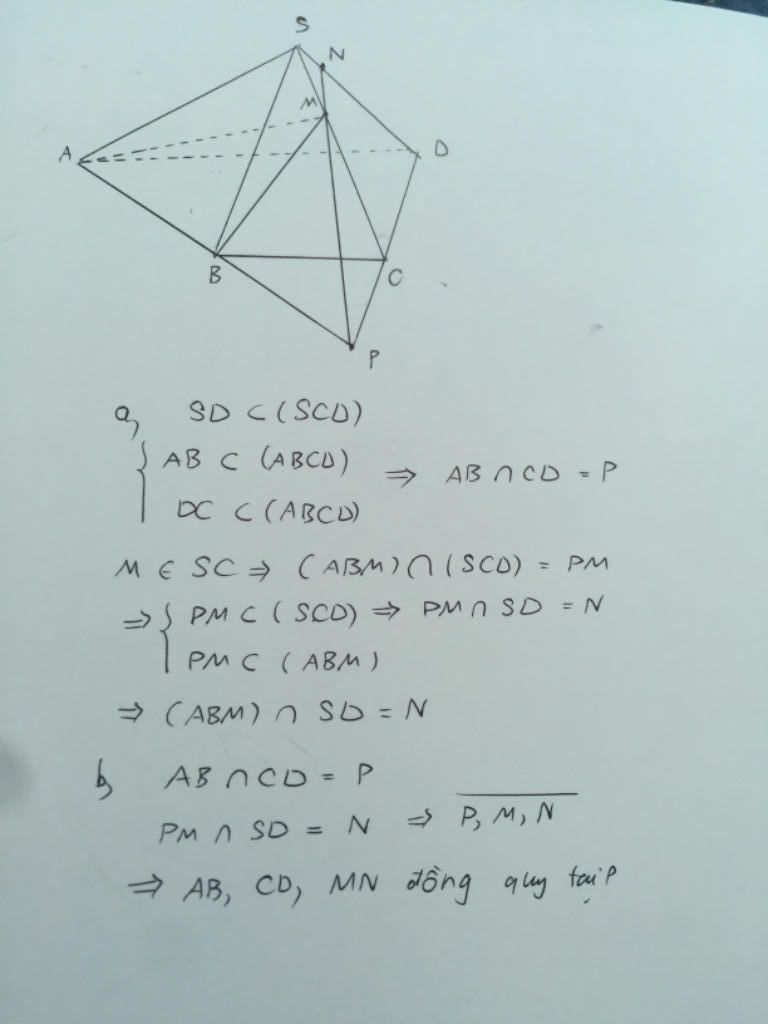 S
N
M
A
D
B
C
P
a, SD ⊂ (SCD)
{ AB ⊂ (ABCD) ⇒ AB ∩ CD = P
DC ⊂ (ABCD)
M ∈ SC ⇒ (ABM) ∩ (SCD) = PM
⇒ { PM ⊂ (SCD) ⇒ PM ∩ SD = N
PM ⊂ (ABM)
⇒ (ABM) ∩ SD = N
b, AB ∩ CD = P
PM ∩ SD = N ⇒ P, M, N
⇒ AB, CD, MN đồng quy tại P